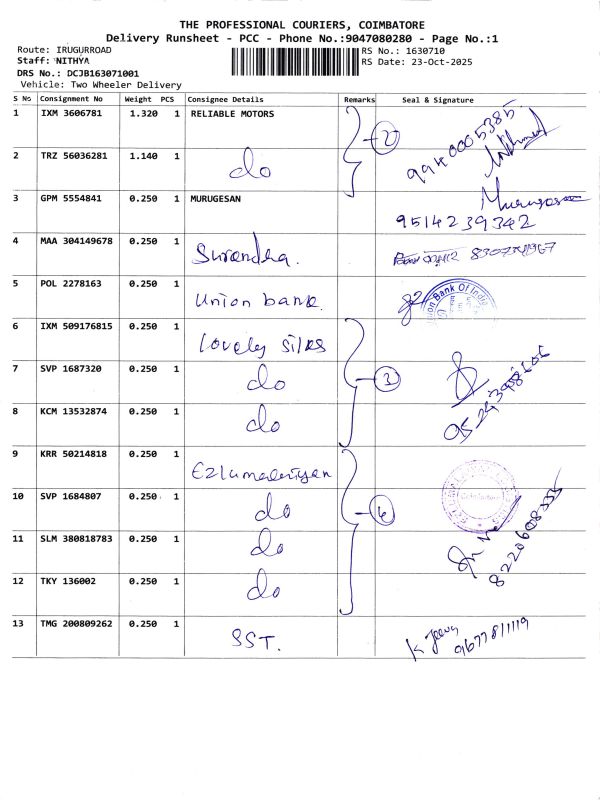 THE PROFESSIONAL COURIERS, COIMBATORE
Delivery Runsheet - PCC - Phone No.:9047080280 - Page No.:1
Route: IRUGURROAD
RS No.: 1630710
Staff: NITHYA
RS Date: 23-Oct-2025
DRS No.: DCJB163071001
Vehicle: Two Wheeler Delivery
S No Consignment No Weight PCS Consignee Details Remarks Seal & Signature
1 IXM 3606781 1.320 1 RELIABLE MOTORS 2 9940005385
2 TRZ 56036281 1.140 1 do
3 GPM 5554841 0.250 1 MURUGESAN Murugesan
9514239342
4 MAA 304149678 0.250 1 Surendha.
5 POL 2278163 0.250 1 Union bank
6 IXM 509176815 0.250 1 Lovely silks
7 SVP 1687320 0.250 1 do 3
8 KCM 13532874 0.250 1 do
9 KRR 50214818 0.250 1
10 SVP 1684807 0.250 1 do Coimbatore
11 SLM 380818783 0.250 1 do
12 TKY 136002 0.250 1 do
13 TMG 200809262 0.250 1 SST. K